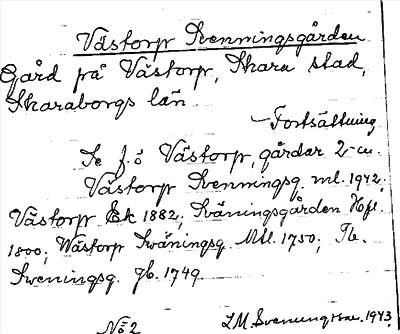 Västorp Svenningsgården
Gård på Västorp, Skara stad,
Skaraborgs län
Fortsättning
Se f. ö Västorp, gårdar 2-
Västorp Svenningsg. ml. 1942;
Västorp Ek 1882; Sväningsgården Hfl.
1800; Wästorp Sväningsg. Mtl. 1750; Tb.
Sweningsg. Jb. 1749.
No 2
I.M. Svenungsson. 1943.